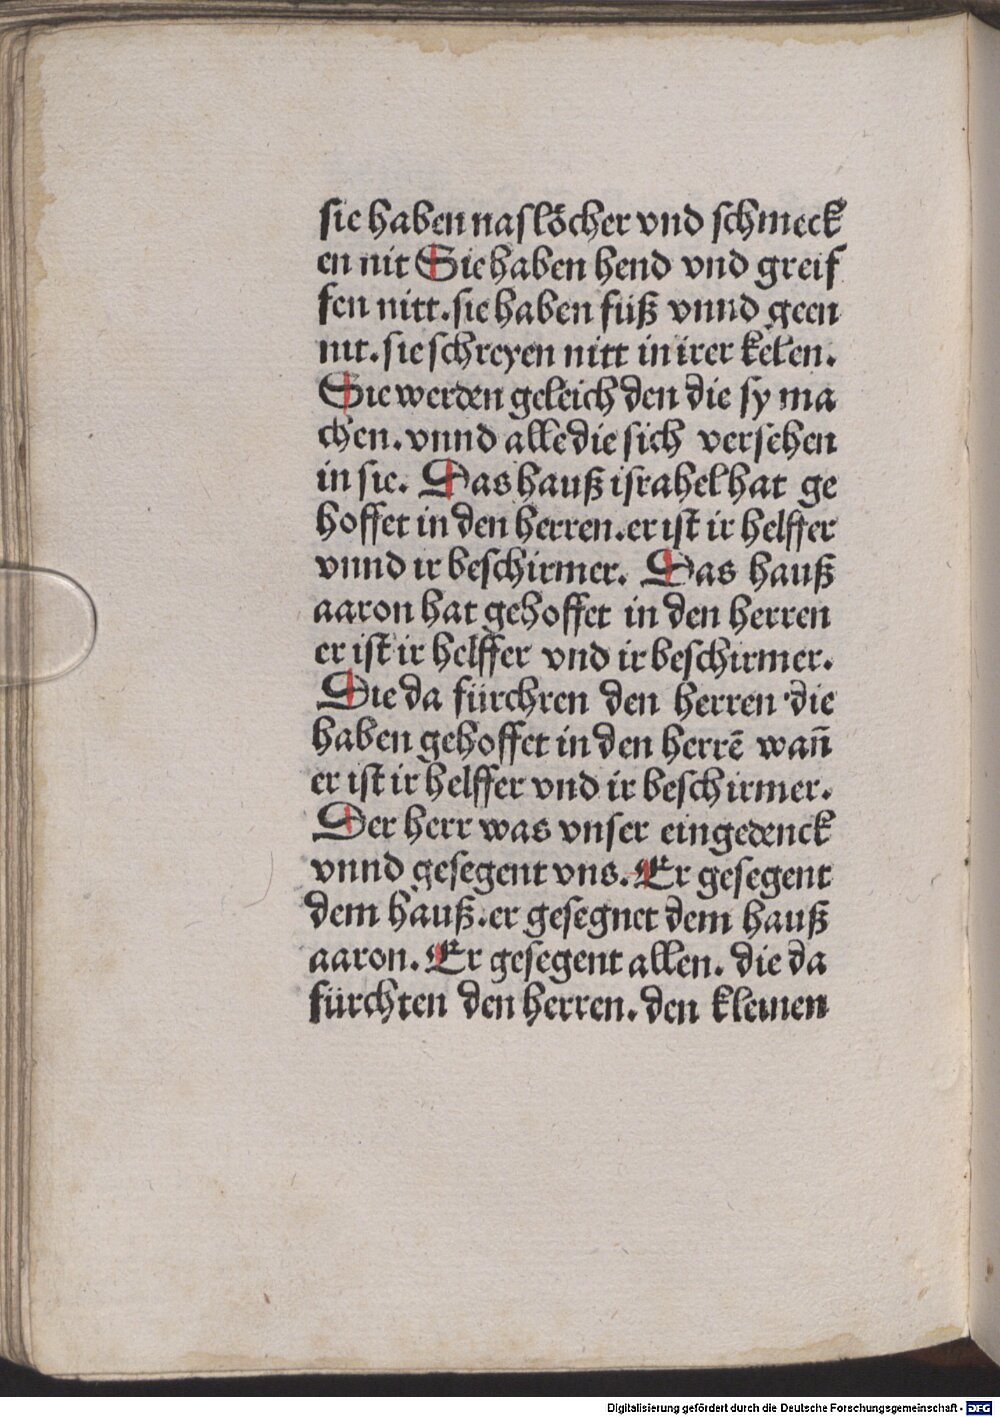 sie haben naslöcher vnd schmeck
en nit Sie haben hend vnd greif
fen nitt. sie haben füß vnnd geen
nit. sie schreyen nitt in irer kelen.
Sie werden geleich den die sy ma
chen. vnnd alle die sich versehen
in sie. Das hauß israhel hat ge
hoffet in den herren. er ist ir helffer
vnnd ir beschirmer. Das hauß
aaron hat gehoffet in den herren
er ist ir helffer vnd ir beschirmer.
Die da fürchren den herren die
haben gehoffet in den herrē wañ
er ist ir helffer vnd ir beschirmer.
Der herr was vnser eingedenck
vnnd gesegent vns. Er gesegent
dem hauß. er gesegnet dem hauß
aaron. Er gesegent allen. die da
fürchten den herren. den kleinen
Digitalisierung gefördert durch die Deutsche Forschungsgemeinschaft - DFG